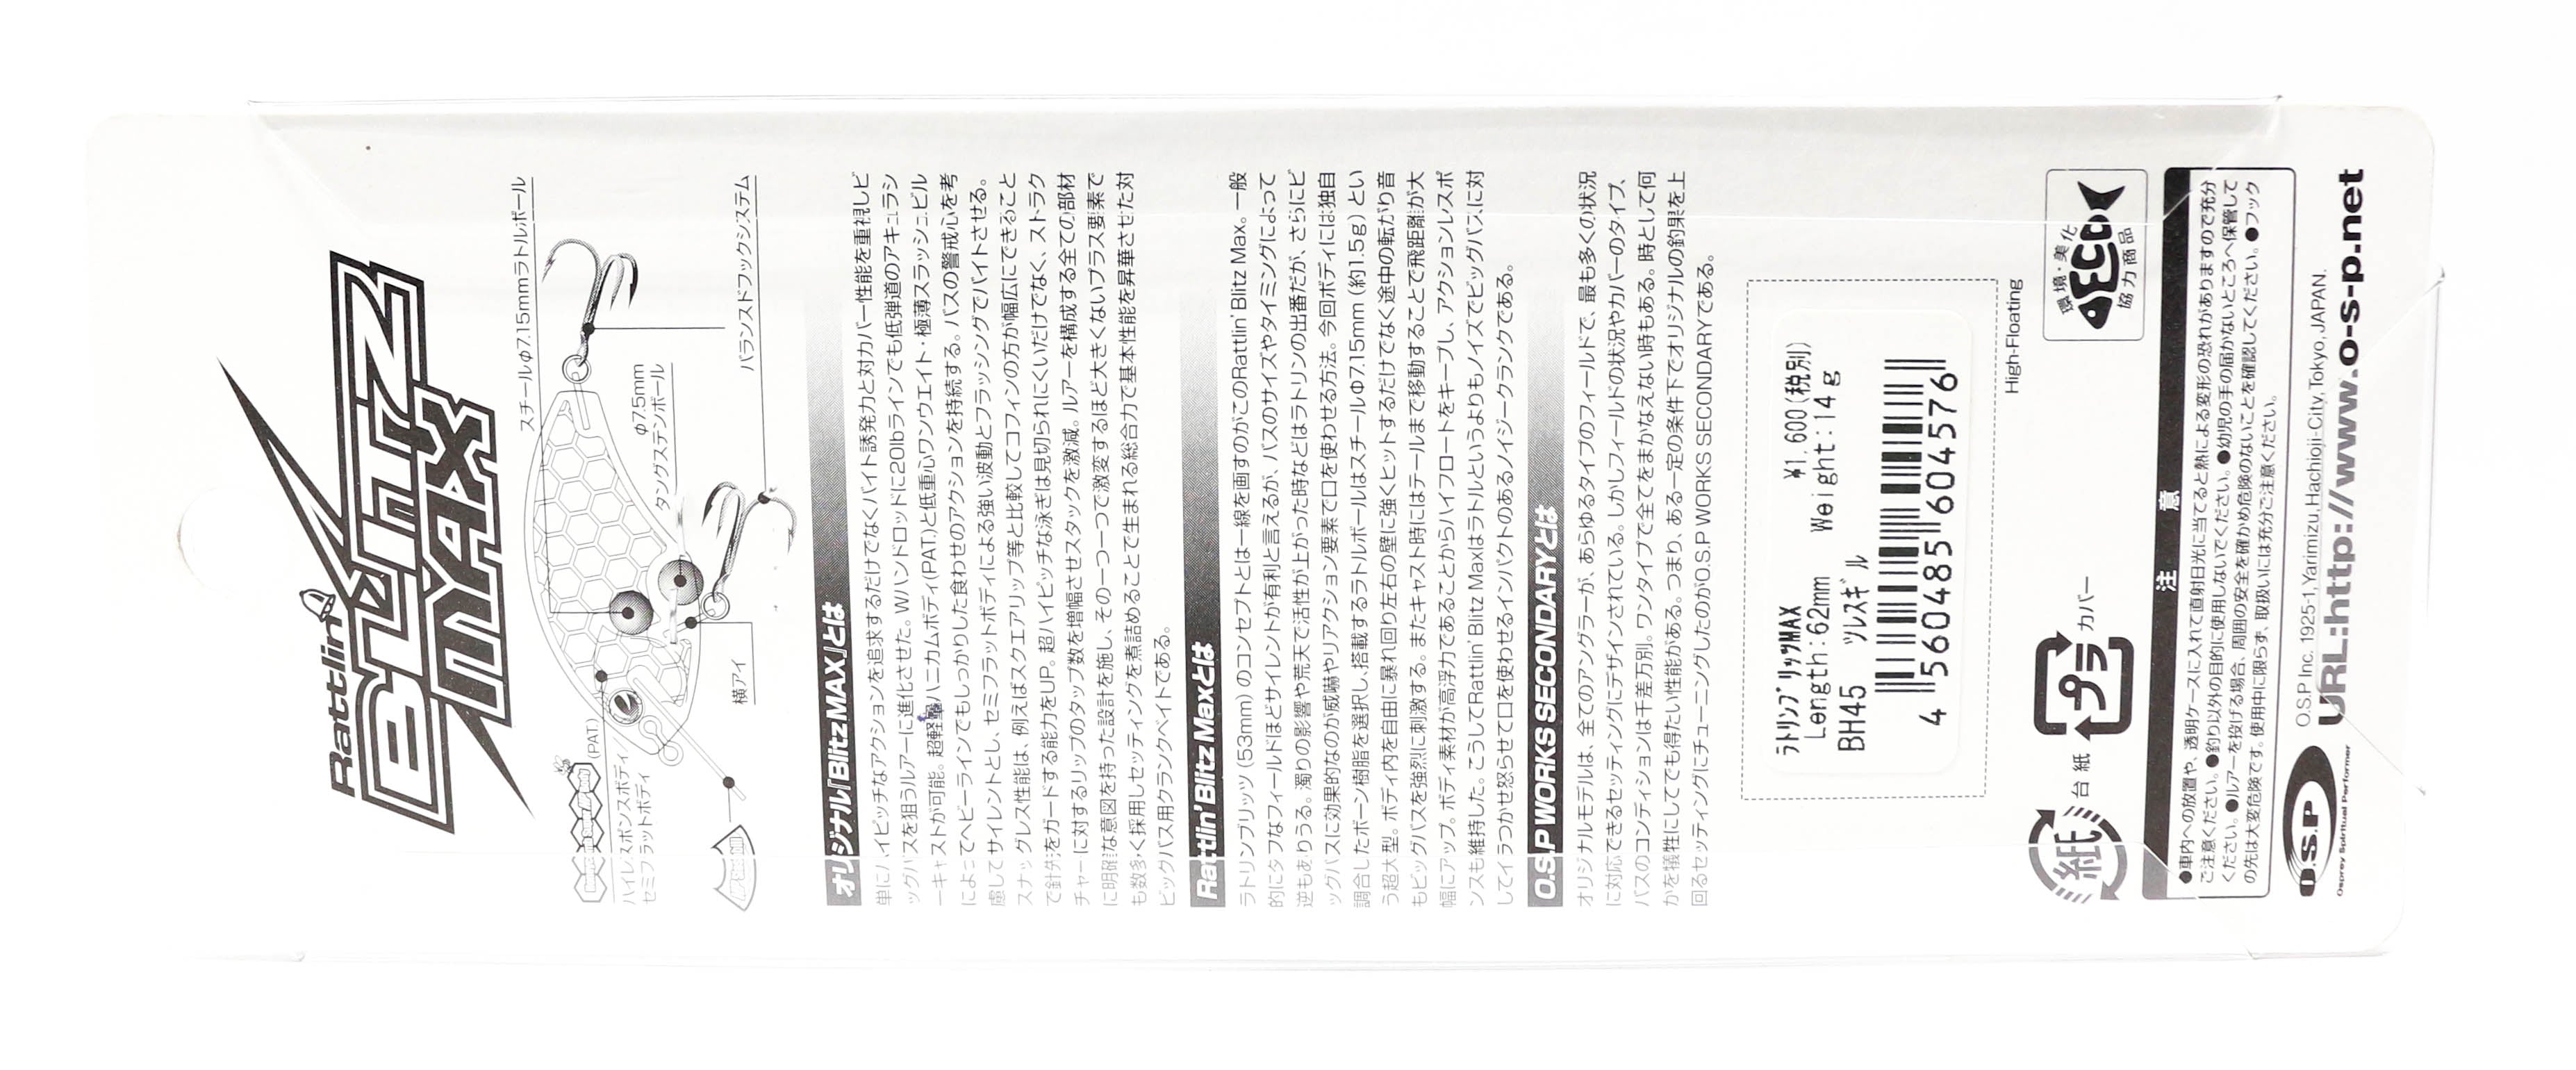 Rattlin'
BLITZ
MAX
スチールφ7.15mmラトルボール
φ7.5mm
タングステンボール
バランスドフックシステム
横アイ
(PAT.)
ハイレスポンスボディ
セミフラットボディ
オリジナル「Blitz MAX」とは
単にハイピッチなアクションを追求するだけでなくバイト誘発力と対カバー性能を重視しビ
ッグバスを狙うルアーに進化させた。W/ハンドロッドに20lbラインでも低弾道のアキュラシ
ーキャストが可能。超軽量ハニカムボディ(PAT.)と低重心ワンウエイト・極薄スラッシュビル
によってヘビーラインでもしっかりした食わせのアクションを持続する。バスの警戒心を考
慮してサイレントとし、セミフラットボディによる強い波動とフラッシングでバイトさせる。
スナッグレス性能は、例えばスクエアリップ等と比較してコフィンの方が幅広にできること
で針先をガードする能力をUP。超ハイピッチな泳ぎは見切られにくいだけでなく、ストラク
チャーに対するリップのタップ数を増幅させスタックを激減。ルアーを構成する全ての部材
に明確な意図を持った設計を施し、その一つ一つで激変するほど大きくないプラス要素で
も数多く採用しセッティングを煮詰めることで生まれる総合力で基本性能を昇華させた対
ビッグバス用クランクベイトである。
Rattlin' Blitz Maxとは
ラトリンブリッツ(53mm)のコンセプトとは一線を画すのがこのRattlin' Blitz Max。一般
的にタフなフィールドほどサイレントが有利と言えるが、バスのサイズやタイミングによって
逆もありうる。濁りの影響や荒天で活性が上がった時などはラトリンの出番だが、さらにビ
ッグバスに効果的なのが威嚇やリアクション要素で口を使わせる方法。今回ボディには独自
調合したボーン樹脂を選択し、搭載するラトルボールはスチールφ7.15mm(約1.5g)とい
う超大型。ボディ内を自由に暴れ回り左右の壁に強くヒットするだけでなく途中の転がり音
もビッグバスを強烈に刺激する。またキャスト時にはテールまで移動することで飛距離が大
幅にアップ。ボディ素材が高浮力であることからハイフロートをキープし、アクションレスポ
ンスも維持した。こうしてRattlin' Blitz Maxはラトルというよりもノイズでビッグバスに対
してイラつかせ怒らせて口を使わせるインパクトのあるノイジークランクである。
O.S.P WORKS SECONDARYとは
オリジナルモデルは、全てのアングラーが、あらゆるタイプのフィールドで、最も多くの状況
に対応できるセッティングにデザインされている。しかしフィールドの状況やカバーのタイプ、
バスのコンディションは千差万別。ワンタイプで全てをまかなえない時もある。時として何
かを犠牲にしてでも得たい性能がある。つまり、ある一定の条件下でオリジナルの釣果を上
回るセッティングにチューニングしたのがO.S.P WORKS SECONDARYである。
ラトリンブリッツMAX ¥1,600(税別)
Length:62mm Weight:14g
BH45 ツレスギル
4 560485 604576
High-Floating
台紙
紙
プラ
カバー
環境・美化
ECO
協力商品
注 意
●車内への放置や、透明ケースに入れて直射日光に当てると熱による変形の恐れがありますので充分
ご注意ください。●釣り以外の目的に使用しないでください。●幼児の手の届かないところへ保管して
ください。●ルアーを投げる場合、周囲の安全を確かめ危険のないことを確認してください。●フック
の先は大変危険です。使用中に限らず、取扱いには充分ご注意ください。
O.S.P
Osprey Spiritual Performer
O.S.P Inc. 1925-1, Yarimizu, Hachioji-City, Tokyo, JAPAN.
URL:http://www.o-s-p.net